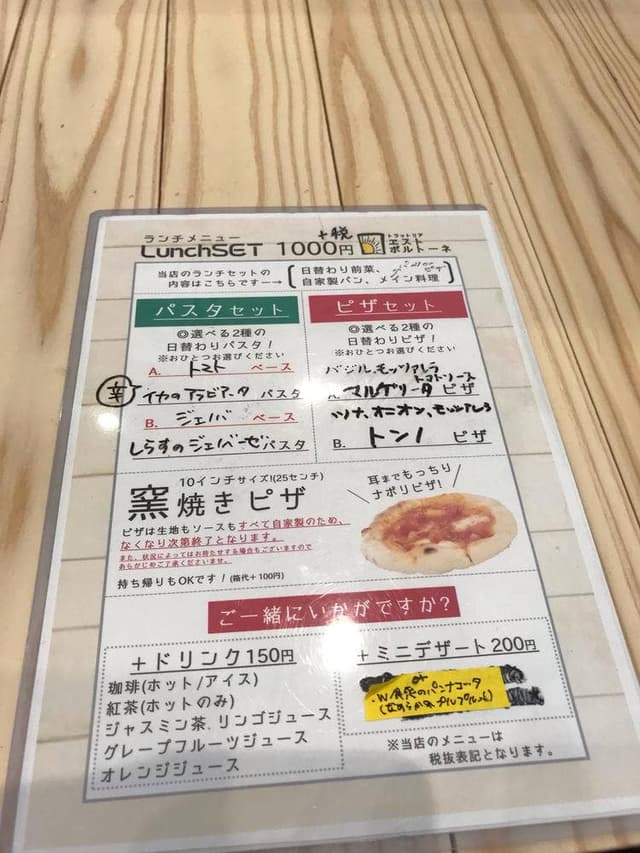 ランチメニュー
LunchSET 1000円 +税
トラットリア
エスト
ポルトーネ
当店のランチセットの
内容はこちらです→
日替わり前菜、
自家製パン、メイン料理
パスタセット
◎選べる2種の
日替わりパスタ!
※おひとつお選びください
A. トマト ベース
辛 イカのアラビアータ パスタ
B. ジェノバ ベース
しらすのジェノベーゼ パスタ
ピザセット
◎選べる2種の
日替わりピザ!
※おひとつお選びください
バジル、モッツァレラ
トマトソース
マルゲリータ ピザ
ツナ、オニオン、モッツァレラ
B. トンノ ピザ
10インチサイズ!(25センチ)
窯焼きピザ
ピザは生地もソースもすべて自家製のため、
なくなり次第終了となります。
また、状況によってはお待たせする場合もございますので
あらかじめご了承くださいませ。
持ち帰りもOKです!(箱代+100円)
耳までもっちり
ナポリピザ!
ご一緒にいかがですか?
+ドリンク150円
珈琲(ホット/アイス)
紅茶(ホットのみ)
ジャスミン茶、リンゴジュース
グレープフルーツジュース
オレンジジュース
+ミニデザート200円
のパンナコッタ
※当店のメニューは
税抜表記となります。